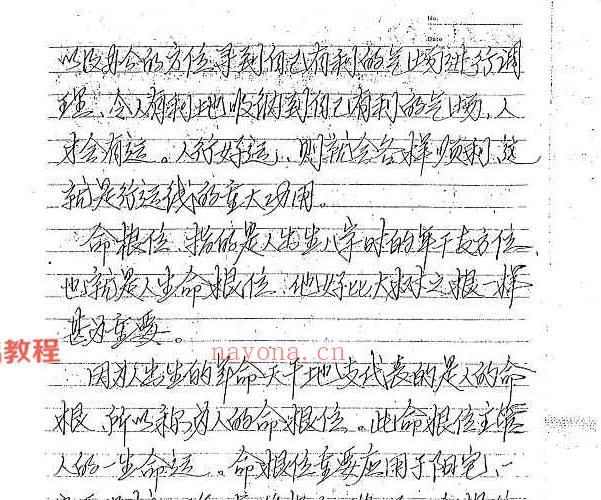 No.
Date
以及办公的方位寻到自己有利的气场进行调
理、令人有利地吸纳到自己有利的气场，人
才会有运。人行好运，则就会各样顺利，这
就是行运线的重大功用。
命根位、指的是人出生八字时的年干支方位、
也就是人生命根位、他好比大树之根一样
甚为重要。
因为人出生的年命天干地支代表的是人的命
教程
nayona.cn
根、所以称为人的命根位。此命根位主管
人的一生命运。命根位重要应用于阳宅、一